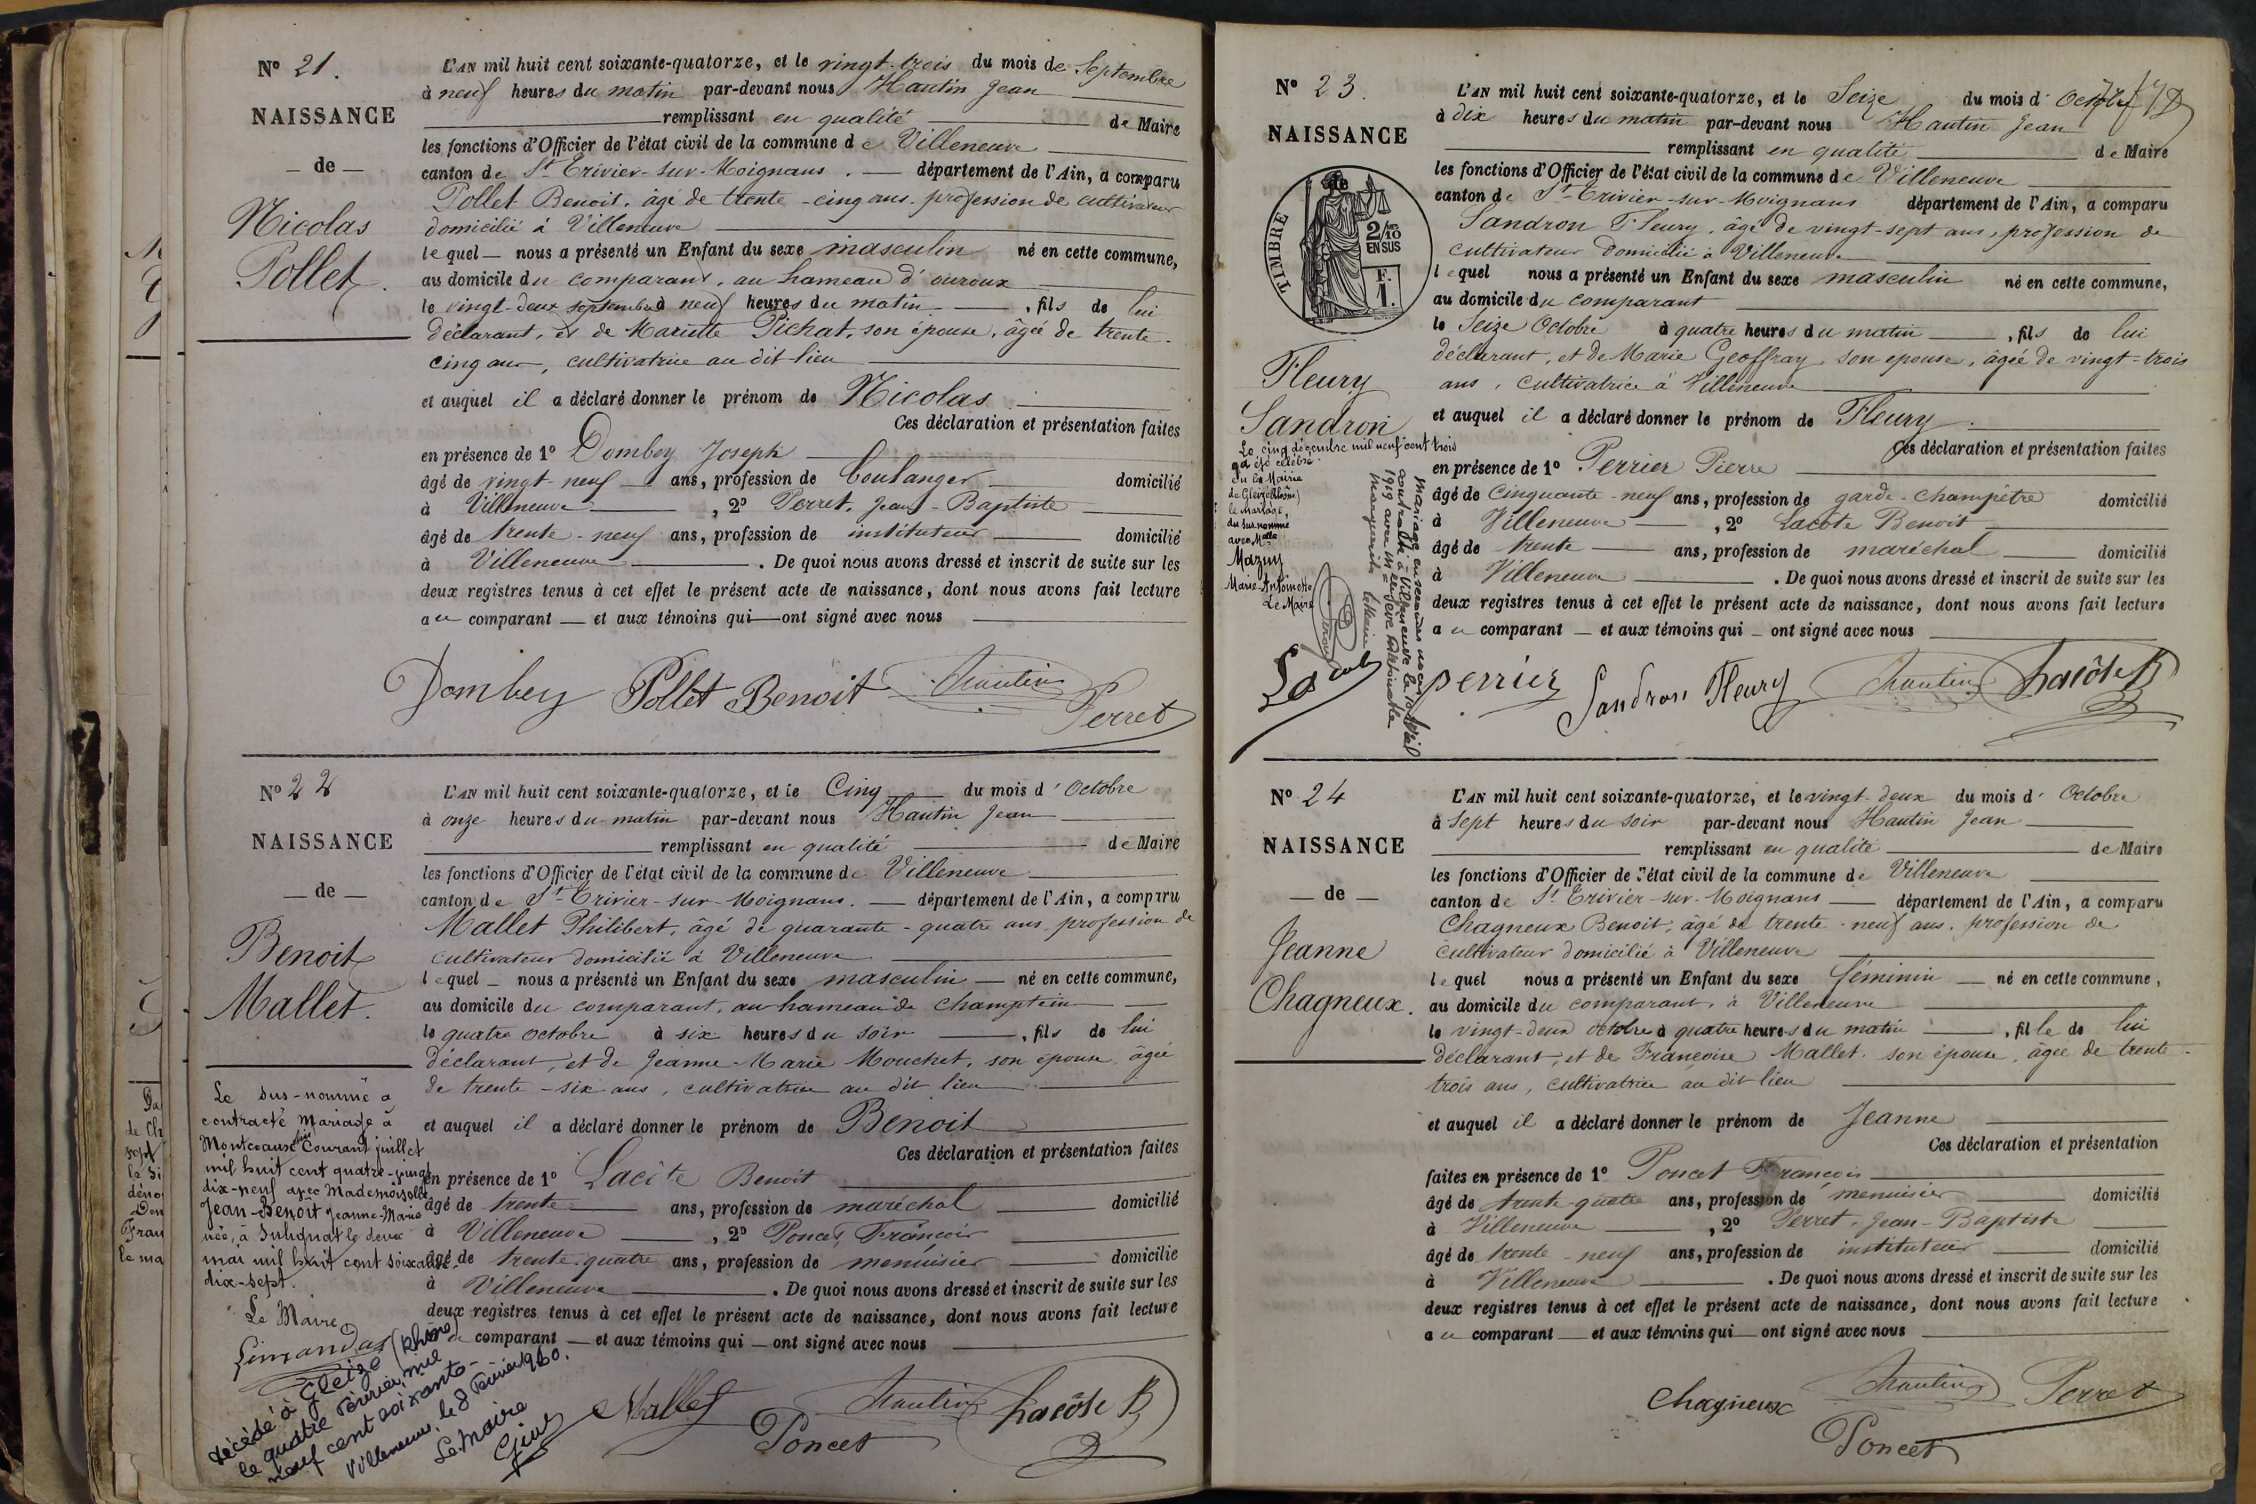 N° 21.
NAISSANCE
— de —
Nicolas
Pollet.
L'AN mil huit cent soixante-quatorze, et le vingt-trois du mois de Septembre
à neuf heures du matin par-devant nous Hautin Jean
remplissant en qualité de Maire
les fonctions d'Officier de l'état civil de la commune de Villeneuve
canton de St Trivier-sur-Moignans. — département de l'Ain, a comparu
Pollet Benoit, âgé de trente-cinq ans, profession de cultivateur
domicilié à Villeneuve
lequel — nous a présenté un Enfant du sexe masculin né en cette commune,
au domicile du comparant, au hameau d'ouroux
le vingt-deux septembre à neuf heures du matin —, fils de lui
déclarant, et de Mariette Pichat, son épouse, âgée de trente-
cinq ans, cultivatrice au dit lieu
et auquel il a déclaré donner le prénom de Nicolas
Ces déclaration et présentation faites
en présence de 1° Dombey Joseph
âgé de vingt-neuf ans, profession de boulanger domicilié
à Villeneuve, 2° Perret, Jean-Baptiste
âgé de trente-neuf ans, profession de instituteur domicilié
à Villeneuve. De quoi nous avons dressé et inscrit de suite sur les
deux registres tenus à cet effet le présent acte de naissance, dont nous avons fait lecture
au comparant — et aux témoins qui — ont signé avec nous
Dombey Pollet Benoit Hautin
Perret
N° 22
NAISSANCE
— de —
Benoit
Mallet.
L'AN mil huit cent soixante-quatorze, et le Cinq du mois d'Octobre
à onze heures du matin par-devant nous Hautin Jean
remplissant en qualité de Maire
les fonctions d'Officier de l'état civil de la commune de Villeneuve
canton de St Trivier-sur-Moignans. — département de l'Ain, a comparu
Mallet Philibert, âgé de quarante-quatre ans profession de
cultivateur domicilié à Villeneuve
lequel — nous a présenté un Enfant du sexe masculin — né en cette commune,
au domicile du comparant, au hameau de Champtein
le quatre octobre à six heures du soir —, fils de lui
déclarant, et de Jeanne-Marie Mouchet, son épouse âgée
de trente-six ans, cultivatrice au dit lieu
et auquel il a déclaré donner le prénom de Benoit
Ces déclaration et présentation faites
en présence de 1° Lacôte Benoit
âgé de trente ans, profession de maréchal domicilié
à Villeneuve, 2° Poncet, François
âgé de trente-quatre ans, profession de menuisier domicilié
à Villeneuve. De quoi nous avons dressé et inscrit de suite sur les
deux registres tenus à cet effet le présent acte de naissance, dont nous avons fait lecture
comparant — et aux témoins qui — ont signé avec nous
Mallet Hautin Lacôte B
Poncet
Le sus-nommé a
contracté Mariage à
Montceaux Courant juillet
mil huit cent quatre-vingt
dix-neuf avec Mademoiselle
Jean-Benoit Jeanne-Marie
née, à le deux
mai mil huit cent soixante
dix-sept.
Le Maire
Limandas
décédé à Gleizé (Rhône)
le quatre Février mil
neuf cent soixante-
Villeneuve, le 8 Février 1960.
Le Maire
N° 23.
NAISSANCE
TIMBRE
2/10
EN SUS
F.
1.
Fleury
Sandron
L'AN mil huit cent soixante-quatorze, et le Seize du mois d'Octobre
à dix heures du matin par-devant nous Hautin Jean
remplissant en qualité de Maire
les fonctions d'Officier de l'état civil de la commune de Villeneuve
canton de St Trivier-sur-Moignans département de l'Ain, a comparu
Sandron Fleury, âgé de vingt-sept ans, profession de
cultivateur domicilié à Villeneuve
lequel nous a présenté un Enfant du sexe masculin né en cette commune,
au domicile du comparant
le Seize Octobre à quatre heures du matin —, fils de lui
déclarant, et de Marie Geoffray, son épouse, âgée de vingt-trois
ans, cultivatrice à Villeneuve
et auquel il a déclaré donner le prénom de Fleury
Ces déclaration et présentation faites
en présence de 1° Perrier Pierre
âgé de Cinquante-neuf ans, profession de garde-champêtre domicilié
à Villeneuve —, 2° Lacôte Benoit
âgé de trente ans, profession de maréchal domicilié
à Villeneuve. De quoi nous avons dressé et inscrit de suite sur les
deux registres tenus à cet effet le présent acte de naissance, dont nous avons fait lecture
au comparant — et aux témoins qui — ont signé avec nous
perrier Sandron Fleury Hautin Lacôte B
Le cinq décembre mil neuf cent trois
a été célébré
en la Mairie
de Gleizé (Rhône)
le mariage,
du susnommé
avec Melle
Mazuy
Marie-Antoinette
Le Maire
Mariage en secondes noces
contracté à Villeneuve le
1919 avec
Marguerite
N° 24
NAISSANCE
— de —
Jeanne
Chagneux.
L'AN mil huit cent soixante-quatorze, et le vingt-deux du mois d'Octobre
à Sept heures du soir par-devant nous Hautin Jean
remplissant en qualité de Maire
les fonctions d'Officier de l'état civil de la commune de Villeneuve
canton de St Trivier-sur-Moignans — département de l'Ain, a comparu
Chagneux Benoit, âgé de trente-neuf ans, profession de
cultivateur domicilié à Villeneuve
lequel nous a présenté un Enfant du sexe féminin — né en cette commune,
au domicile du comparant, à Villeneuve
le vingt-deux octobre à quatre heures du matin —, fille de lui
déclarant, et de Françoise Mallet son épouse, âgée de trente-
trois ans, cultivatrice au dit lieu
et auquel il a déclaré donner le prénom de Jeanne
Ces déclaration et présentation
faites en présence de 1° Poncet François
âgé de trente-quatre ans, profession de menuisier domicilié
à Villeneuve, 2° Perret, Jean-Baptiste
âgé de trente-neuf ans, profession de instituteur domicilié
à Villeneuve. De quoi nous avons dressé et inscrit de suite sur les
deux registres tenus à cet effet le présent acte de naissance, dont nous avons fait lecture
au comparant — et aux témoins qui — ont signé avec nous
Chagneux Hautin Perret
Poncet